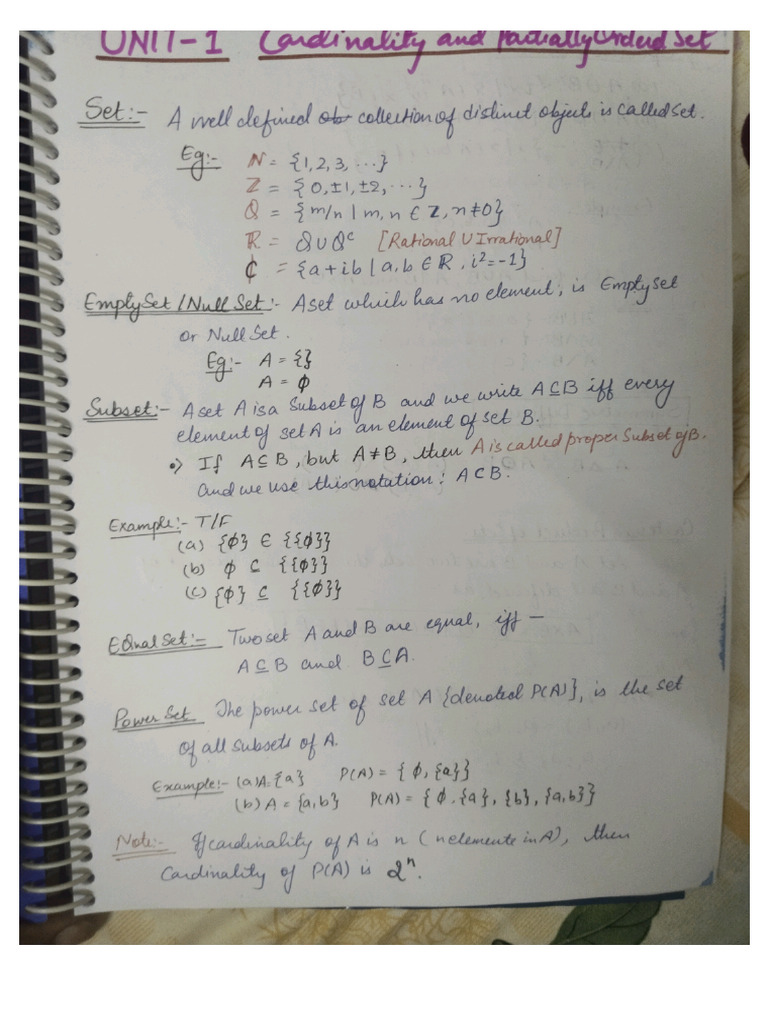 UNIT-1 Cardinality and Partially Ordered Set
Set:- A well defined ob collection of distinct objects is called set.
Eg:- N = {1, 2, 3, ...}
Z = {0, ±1, ±2, ...}
Q = {m/n | m, n ∈ Z, n ≠ 0}
R = Q ∪ Qᶜ [Rational ∪ Irrational]
₵ = {a + ib | a, b ∈ R, i² = -1}
Empty Set / Null Set :- A set which has no element, is Empty Set
or Null Set.
Eg:- A = {}
A = ϕ
Subset:- A set A is a Subset of B and we write A ⊆ B iff every
element of set A is an element of set B.
•) If A ⊆ B, but A ≠ B, then A is called proper Subset of B.
and we use this notation: A ⊂ B.
Example:- T/F
(a) {ϕ} ∈ {{ϕ}}
(b) ϕ ⊆ {{ϕ}}
(c) {ϕ} ⊆ {{ϕ}}
EQual Set:- Two set A and B are equal, iff —
A ⊆ B and B ⊆ A.
Power Set The power set of set A {denoted P(A)}, is the set
of all subsets of A.
Example:- (a) A = {a} P(A) = {ϕ, {a}}
(b) A = {a, b} P(A) = {ϕ, {a}, {b}, {a, b}}
Note:- If cardinality of A is n (n elements in A), then
Cardinality of P(A) is 2ⁿ.